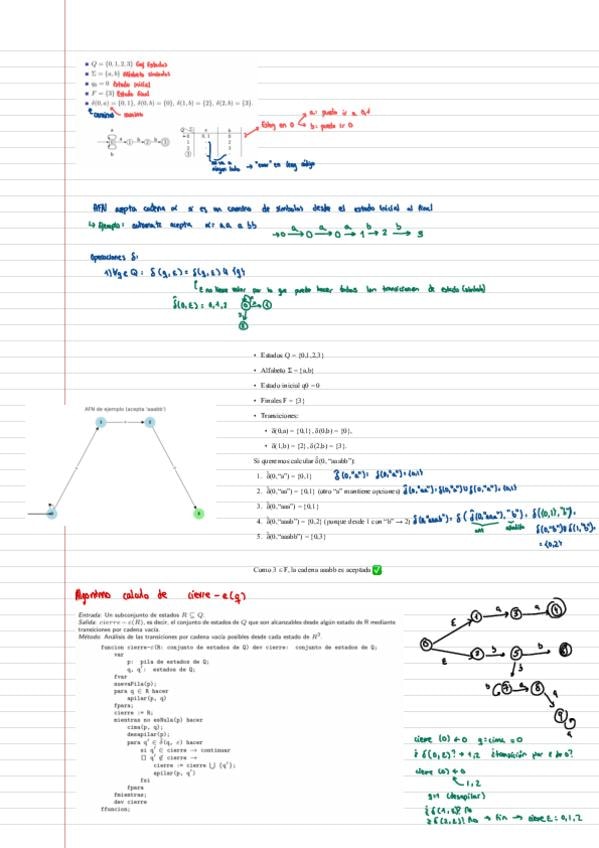 Q = {0, 1, 2, 3} Conj Estados
Σ = {a, b} Alfabeto símbolos
q₀ = 0 Estado inicial
F = {3} Estado final
δ(0, a) = {0, 1}, δ(0, b) = {0}, δ(1, b) = {2}, δ(2, b) = {3}.
Estoy en 0
a: puedo ir a 0,1
b: puedo ir a 0
→ "error" en
AFN acepta cadena α si es un camino de símbolos desde el estado inicial al final
↳ Ejemplo: automata acepta α = aa a bb
→0 a→ 0 a→ 0 a→ 1 b→ 2 b→ 3
Operaciones δ:
no tiene valor por lo que puedo hacer todas las transiciones de estado
δ̂(0, ε) = 0,1,2
• Estados Q = {0,1,2,3}
• Alfabeto Σ = {a,b}
• Estado inicial q0 = 0
• Finales F = {3}
• Transiciones:
• δ(0,a) = {0,1}, δ(0,b) = {0},
• δ(1,b) = {2}, δ(2,b) = {3}.
AFN de ejemplo (acepta 'aaabb')
Si queremos calcular δ̂(0, "aaabb"):
1. δ̂(0,"a") = {0,1} δ̂(0,"a") = δ(0,"a") = {0,1}
2. δ̂(0,"aa") = {0,1} (otro "a" mantiene opciones)
3. δ̂(0,"aaa") = {0,1}
4. δ̂(0,"aaab") = {0,2} (porque desde 1 con "b" → 2) δ̂(0,"aaab") = δ(δ̂(0,"aaa"),"b") = δ({0,1},"b") =
δ(0,"b") ∪ δ(1,"b") =
= {0,2}
5. δ̂(0,"aaabb") = {0,3}
Como 3 ∈ F, la cadena aaabb es aceptada ✅
Algoritmo calculo de cierre-ε(q)
Entrada: Un subconjunto de estados R ⊆ Q.
Salida: cierre − ε(R), es decir, el conjunto de estados de Q que son alcanzables desde algún estado de R mediante
transiciones por cadena vacía.
Método: Análisis de las transiciones por cadena vacía posibles desde cada estado de R
funcion cierre-ε(R: conjunto de estados de Q) dev cierre: conjunto de estados de Q;
var
p: pila de estados de Q;
q, q': estados de Q;
fvar
nuevaPila(p);
para q ∈ R hacer
apilar(p, q)
fpara;
cierre := R;
mientras no esNula(p) hacer
cima(p, q);
desapilar(p);
para q' ∈ δ(q, ε) hacer
si q' ∈ cierre → continuar
[] q' ∉ cierre →
cierre := cierre ⋃ {q'};
apilar(p, q')
fsi
fpara
fmientras;
dev cierre
ffuncion;
cierre (0) ← 0 q = cima = 0
¿ δ(0,ε)? → 1,2 ¿transición por ε de 0?
cierre (0) ← 0
1, 2
q=1 (desapilar)
¿ δ(1,ε)? No
¿ δ(2,ε)? No → Fin → cierre ε = 0,1,2